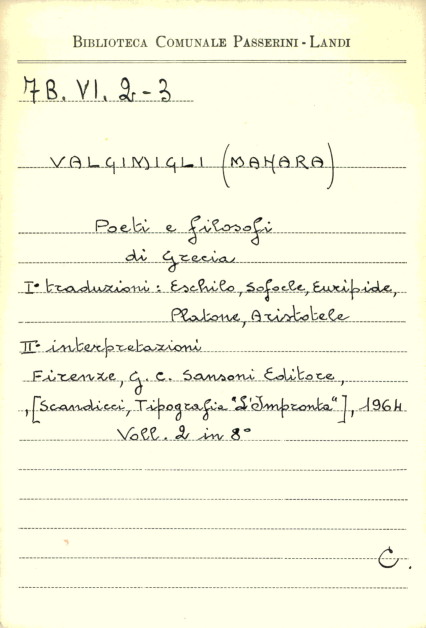 BIBLIOTECA COMUNALE PASSERINI - LANDI
7B. VI. 2-3
VALGIMIGLI (MANARA)
Poeti e filosofi
di Grecia
I° traduzioni: Eschilo, Sofocle, Euripide,
Platone, Aristotele
II° interpretazioni
Firenze, G. C. Sansoni Editore,
,[Scandicci, Tipografia "L'Impronta"], 1964
Voll. 2 in 8°
C.